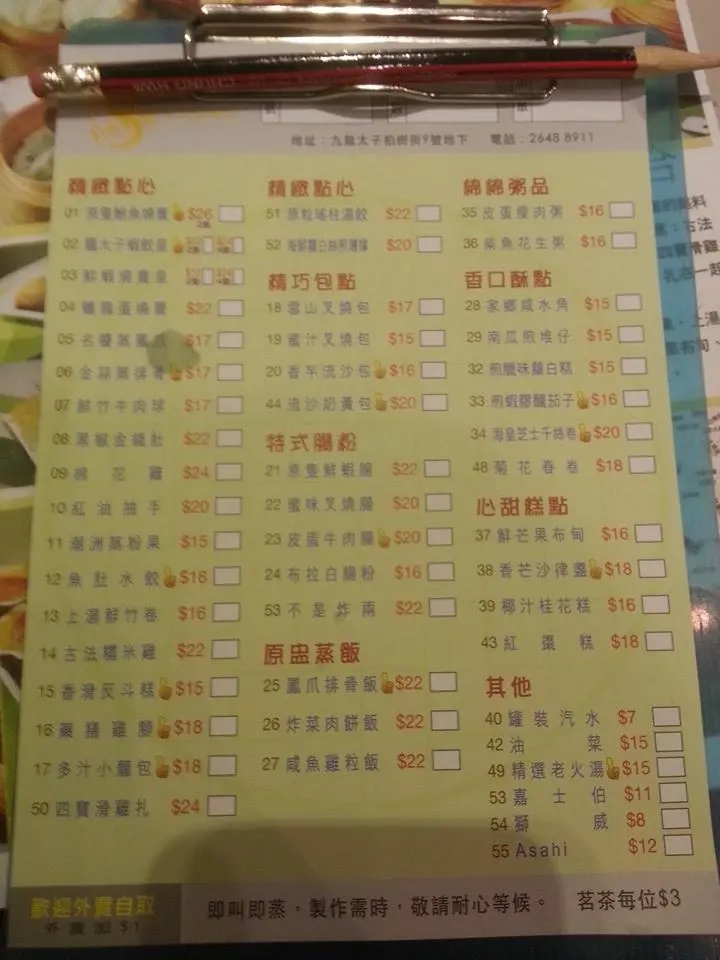 CHUNG HWA
地址：九龍太子柏樹街9號地下 電話：2648 8911
精緻點心
01 原隻鮑魚燒賣 $26
02 龍太子蝦餃皇
03 鮮蝦燒賣皇
04 燒賣 $22
05 $17
06 金蒜蒸排骨 $17
07 鮮竹牛肉球 $17
08 黑椒金錢肚 $22
09 棉花雞 $24
10 紅油抽手 $20
11 潮洲蒸粉果 $15
12 魚肚水餃 $18
13 上湯鮮竹卷 $16
14 古法糯米雞 $22
15 香滑反斗糕 $15
16 雞腳 $18
17 多汁小麵包 $18
50 四寶滑雞扎 $24
精緻點心
51 原粒瑤柱湯餃 $22
52 $20
精巧包點
18 雪山叉燒包 $17
19 蜜汁叉燒包 $15
20 香芋流沙包 $16
44 流沙奶黃包 $20
特式腸粉
21 原隻鮮蝦腸 $22
22 蜜味叉燒腸 $20
23 皮蛋牛肉腸 $20
24 布拉白腸粉 $16
53 不是炸兩 $22
原盅蒸飯
25 鳳爪排骨飯 $22
26 炸菜肉餅飯 $22
27 咸魚雞粒飯 $22
綿綿粥品
35 皮蛋瘦肉粥 $16
36 柴魚花生粥 $16
香口酥點
28 家鄉咸水角 $15
29 南瓜煎堆仔 $15
32 煎臘味蘿白糕 $15
33 煎蝦膠釀茄子 $16
34 海皇芝士千絲卷 $20
48 菊花春卷 $18
心甜糕點
37 鮮芒果布甸 $16
38 香芒沙律盞 $18
39 椰汁桂花糕 $16
43 紅棗糕 $18
其他
40 罐裝汽水 $7
42 油菜 $15
49 精選老火湯 $15
53 嘉士伯 $11
54 獅威 $8
55 Asahi $12
歡迎外賣自取
外賣加$1
即叫即蒸，製作需時，敬請耐心等候。 茗茶每位$3